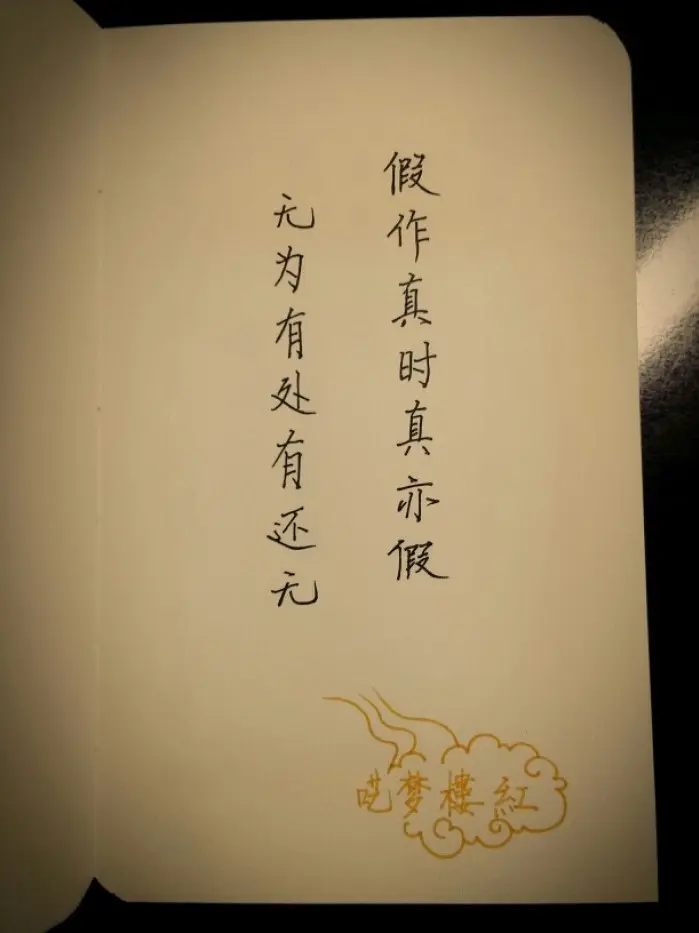 假作真时真亦假
无为有处有还无
紅樓梦呓